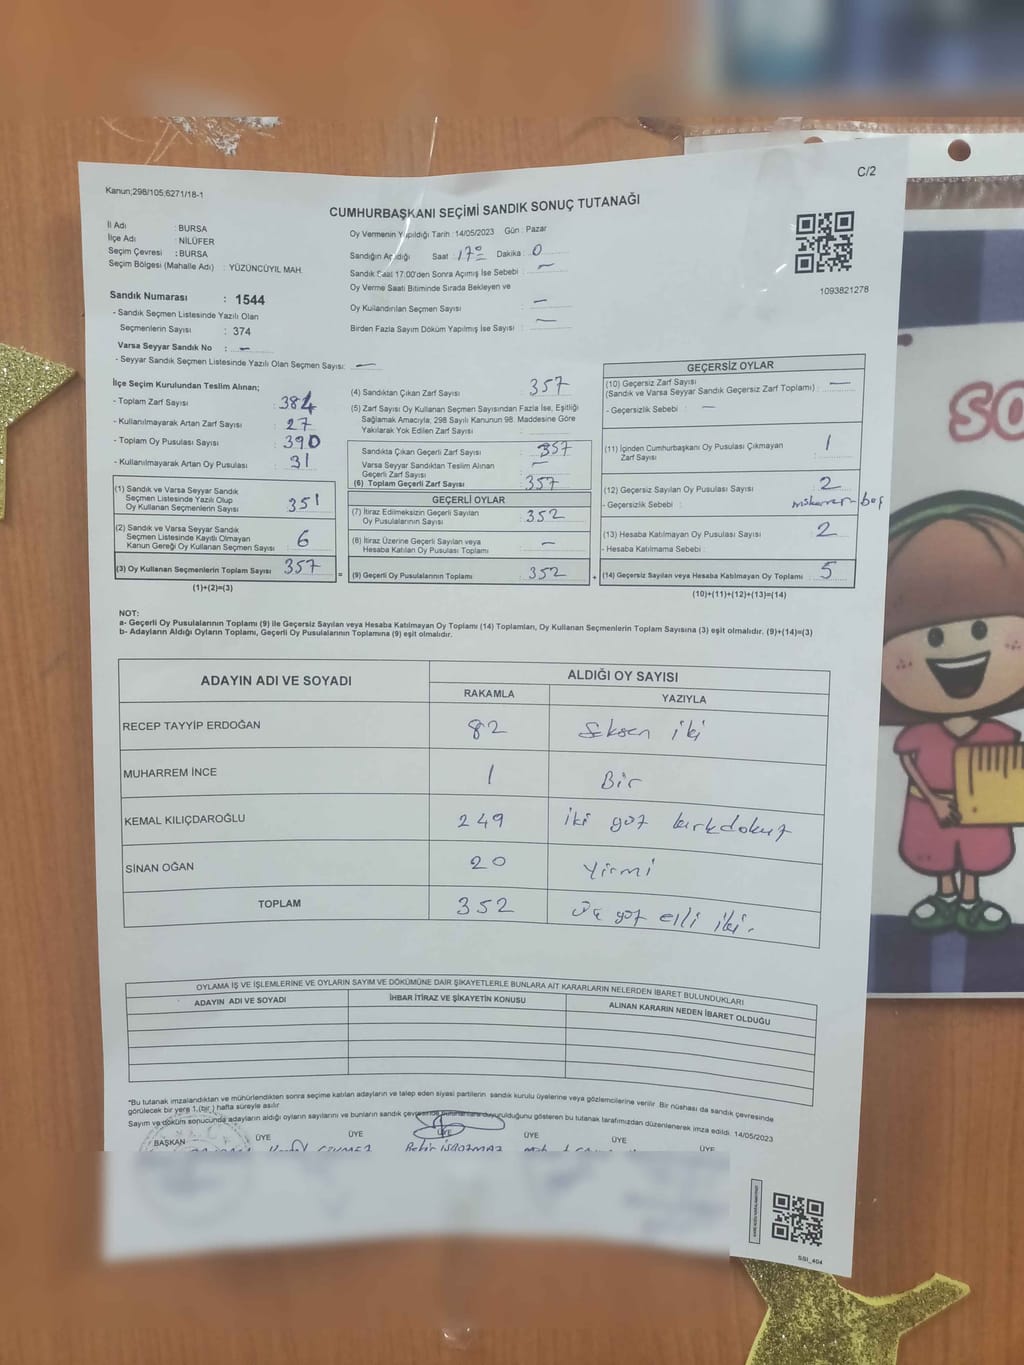 C/2
Kanun;298/105;6271/18-1
CUMHURBAŞKANI SEÇİMİ SANDIK SONUÇ TUTANAĞI
İl Adı : BURSA
İlçe Adı : NİLÜFER
Seçim Çevresi : BURSA
Seçim Bölgesi (Mahalle Adı) : YÜZÜNCÜYIL MAH.
Oy Vermenin Yapıldığı Tarih : 14/05/2023 Gün : Pazar
Sandığın Açıldığı Saat : 17 Dakika : 0
Sandık Saat 17:00'den Sonra Açımış İse Sebebi : —
Oy Verme Saati Bitiminde Sırada Bekleyen ve
Oy Kullandırılan Seçmen Sayısı : —
Birden Fazla Sayım Döküm Yapılmış İse Sayısı : —
1093821278
Sandık Numarası : 1544
- Sandık Seçmen Listesinde Yazılı Olan
Seçmenlerin Sayısı : 374
Varsa Seyyar Sandık No : —
- Seyyar Sandık Seçmen Listesinde Yazılı Olan Seçmen Sayısı: —
İlçe Seçim Kurulundan Teslim Alınan;
- Toplam Zarf Sayısı : 384
- Kullanılmayarak Artan Zarf Sayısı : 27
- Toplam Oy Pusulası Sayısı : 390
- Kullanılmayarak Artan Oy Pusulası : 31
(1) Sandık ve Varsa Seyyar Sandık
Seçmen Listesinde Yazılı Olup
Oy Kullanan Seçmenlerin Sayısı : 351
(2) Sandık ve Varsa Seyyar Sandık
Seçmen Listesinde Kayıtlı Olmayan
Kanun Gereği Oy Kullanan Seçmen Sayısı : 6
(3) Oy Kullanan Seçmenlerin Toplam Sayısı : 357
(1)+(2)=(3)
(4) Sandıktan Çıkan Zarf Sayısı : 357
(5) Zarf Sayısı Oy Kullanan Seçmen Sayısından Fazla İse, Eşitliği
Sağlamak Amacıyla; 298 Sayılı Kanunun 98. Maddesine Göre
Yakılarak Yok Edilen Zarf Sayısı :
Sandıkta Çıkan Geçerli Zarf Sayısı : 357
Varsa Seyyar Sandıktan Teslim Alınan
Geçerli Zarf Sayısı : —
(6) Toplam Geçerli Zarf Sayısı : 357
GEÇERLİ OYLAR
(7) İtiraz Edilmeksizin Geçerli Sayılan
Oy Pusulalarının Sayısı : 352
(8) İtiraz Üzerine Geçerli Sayılan veya
Hesaba Katılan Oy Pusulası Toplamı : —
(9) Geçerli Oy Pusulalarının Toplamı : 352
GEÇERSİZ OYLAR
(10) Geçersiz Zarf Sayısı
(Sandık ve Varsa Seyyar Sandık Geçersiz Zarf Toplamı) : —
- Geçersizlik Sebebi : —
(11) İçinden Cumhurbaşkanı Oy Pusulası Çıkmayan
Zarf Sayısı : 1
(12) Geçersiz Sayılan Oy Pusulası Sayısı : 2
- Geçersizlik Sebebi : mükerrer - boş
(13) Hesaba Katılmayan Oy Pusulası Sayısı : 2
- Hesaba Katılmama Sebebi :
(14) Geçersiz Sayılan veya Hesaba Katılmayan Oy Toplamı : 5
(10)+(11)+(12)+(13)=(14)
NOT:
a- Geçerli Oy Pusulalarının Toplamı (9) ile Geçersiz Sayılan veya Hesaba Katılmayan Oy Toplamı (14) Toplamları, Oy Kullanan Seçmenlerin Toplam Sayısına (3) eşit olmalıdır. (9)+(14)=(3)
b- Adayların Aldığı Oyların Toplamı, Geçerli Oy Pusulalarının Toplamına (9) eşit olmalıdır.
ADAYIN ADI VE SOYADI ALDIĞI OY SAYISI
RAKAMLA YAZIYLA
RECEP TAYYİP ERDOĞAN 82 Seksen iki
MUHARREM İNCE 1 Bir
KEMAL KILIÇDAROĞLU 249 iki yüz kırkdokuz
SİNAN OĞAN 20 Yirmi
TOPLAM 352 Üç yüz elli iki.
OYLAMA İŞ VE İŞLEMLERİNE VE OYLARIN SAYIM VE DÖKÜMÜNE DAİR ŞİKAYETLERLE BUNLARA AİT KARARLARIN NELERDEN İBARET BULUNDUKLARI
ADAYIN ADI VE SOYADI İHBAR İTİRAZ VE ŞİKAYETİN KONUSU ALINAN KARARIN NEDEN İBARET OLDUĞU
*Bu tutanak imzalandıktan ve mühürlendikten sonra seçime katılan adayların ve talep eden siyasi partilerin sandık kurulu üyelerine veya gözlemcilerine verilir. Bir nüshası da sandık çevresinde
görülecek bir yere 1 (bir) hafta süreyle asılır.
Sayım ve döküm sonucunda adayların aldığı oyların sayılarını ve bunların sandık çevresinde duyurulduğunu gösteren bu tutanak tarafımızdan düzenlenerek imza edildi. 14/05/2023
BAŞKAN ÜYE ÜYE ÜYE ÜYE ÜYE ÜYE
SSI_404
SO